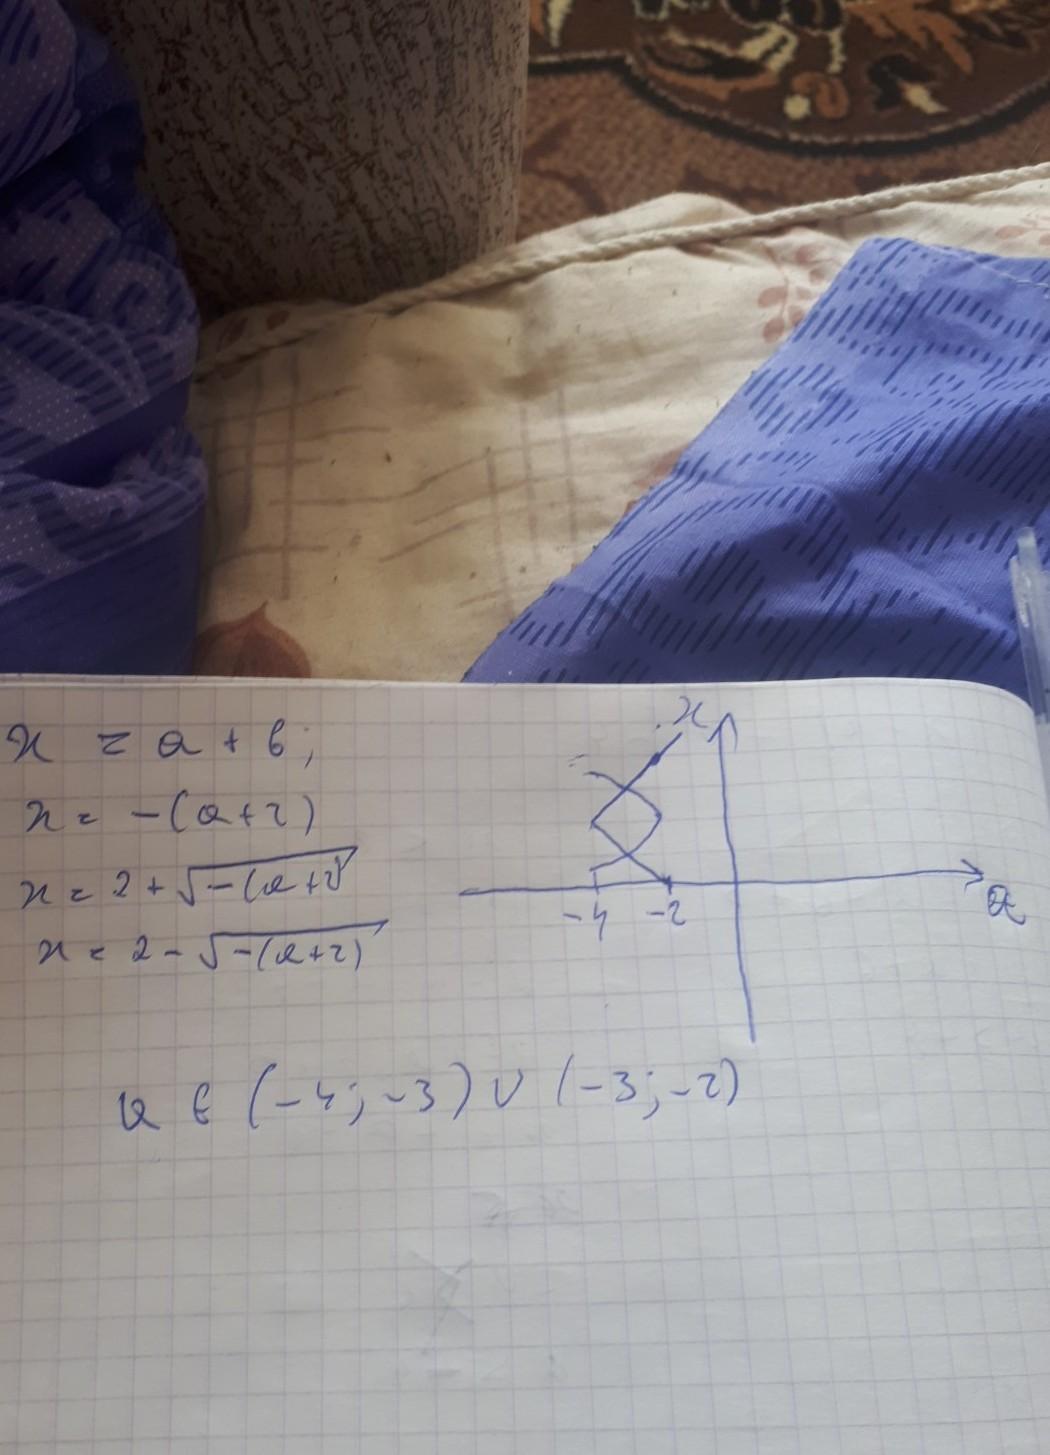 x = a + 6;
x = -(a+2)
x = 2 + √-(a+2)
x = 2 - √-(a+2)
x
-4 -2
a
a ∈ (-4; -3) ∪ (-3; -2)